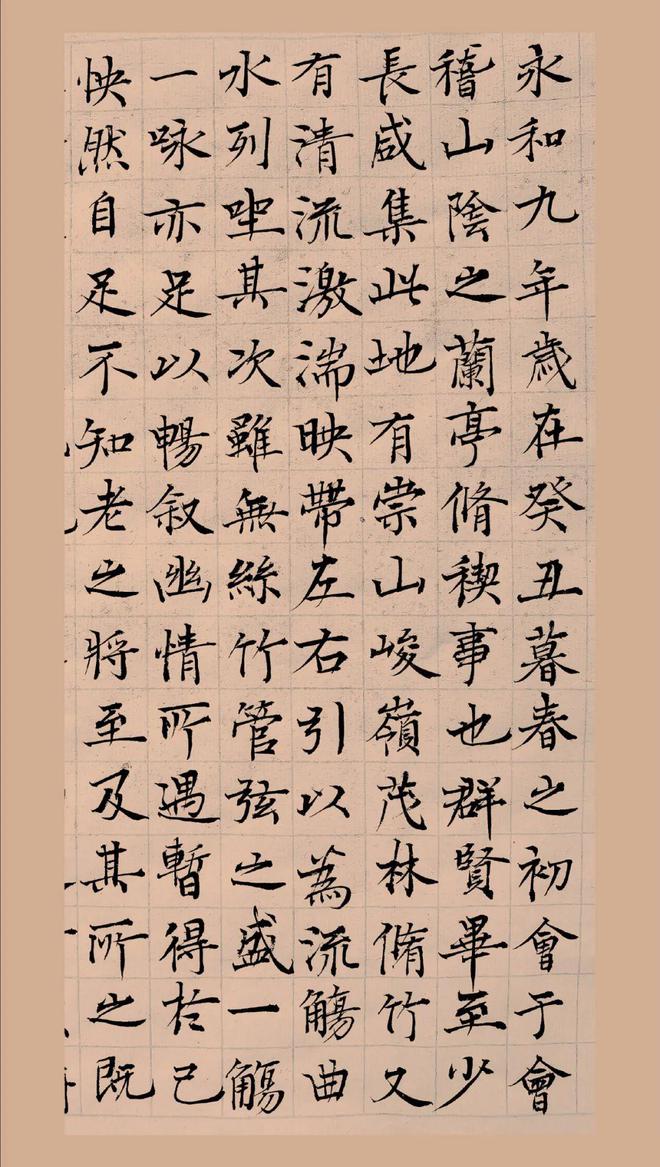 永和九年歲在癸丑暮春之初會于會
稽山陰之蘭亭脩禊事也群賢畢至少
長咸集此地有崇山峻嶺茂林脩竹又
有清流激湍映帶左右引以為流觴曲
水列坐其次雖無絲竹管弦之盛一觴
一咏亦足以暢叙幽情所遇暫得於己
怏然自足不知老之將至及其所之既